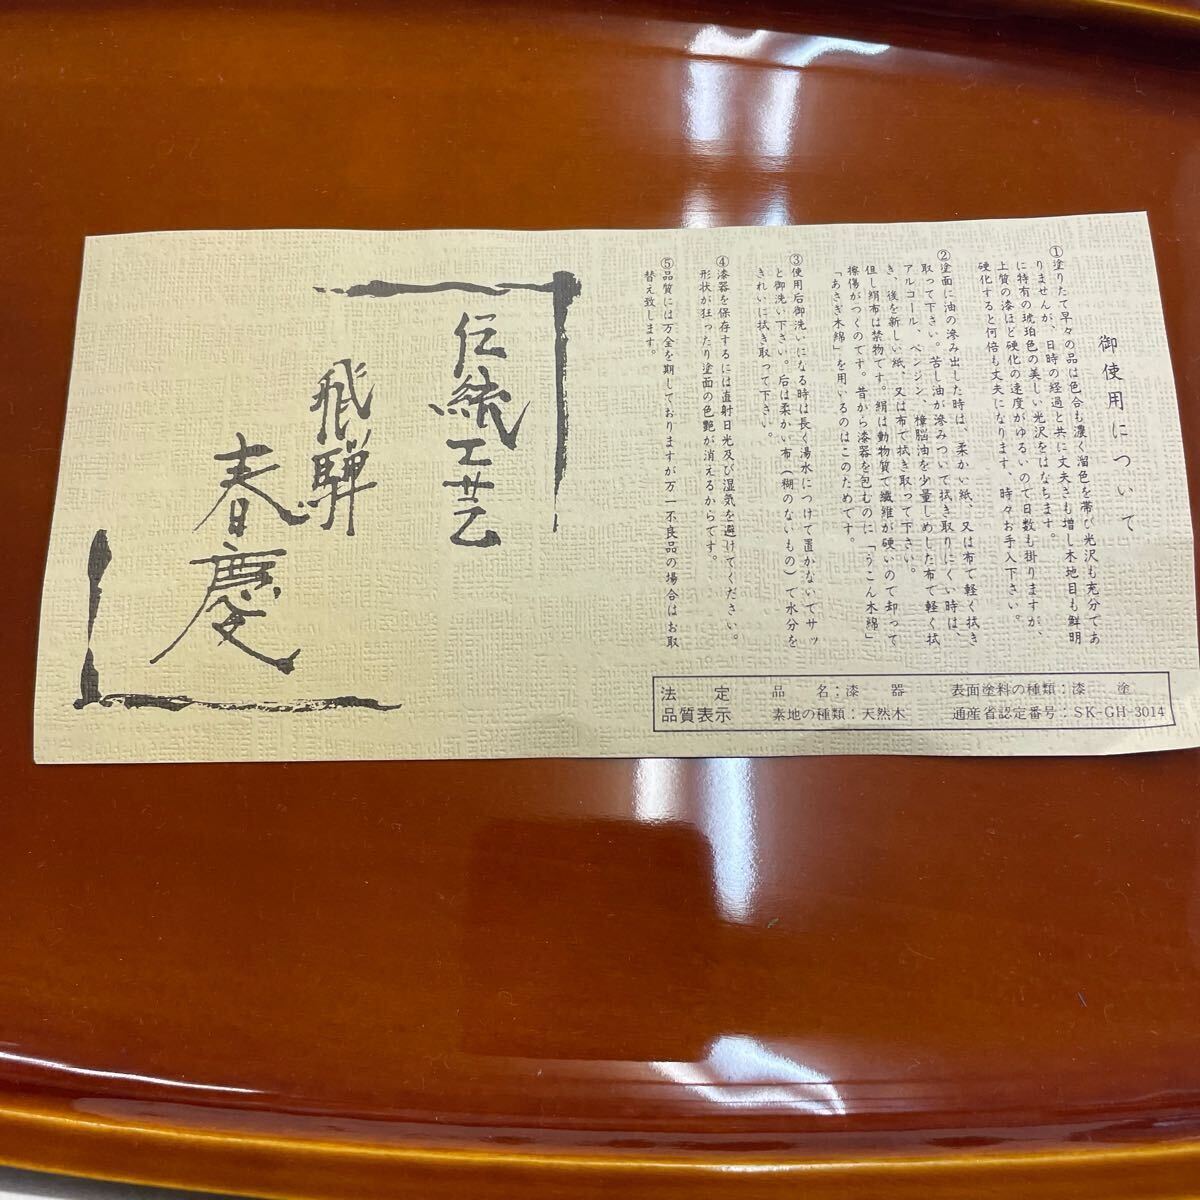 御使用について
①塗りたて早々の品は色合も濃く溜色を帯び光沢も充分であ
りませんが、日時の経過と共に丈夫さも増し木地目も鮮明
に特有の琥珀色の美しい光沢をはなちます。
上質の漆ほど硬化の速度がゆるいので日数も掛りますが、
硬化すると何倍も丈夫になります、時々お手入下さい。
②塗面に油の滲み出した時は、柔かい紙、又は布で軽く拭き
取って下さい。苦し油が滲みついて拭き取りにくい時は、
アルコール、ベンジン、樟脳油を少量しめした布で軽く拭
き、後を新しい紙、又は布で拭き取って下さい。
但し絹布は禁物です。絹は動物質で繊維が硬いので却って
擦傷がつくのです。昔から漆器を包むのに「うこん木綿」
「あさぎ木綿」を用いるのはこのためです。
③使用后御洗いになる時は長く湯水につけて置かないでサッ
と御洗い下さい。后は柔かい布(糊のないもの)で水分を
きれいに拭き取って下さい。
④漆器を保存するには直射日光及び湿気を避けてください。
形状が狂ったり塗面の色艶が消えるからです。
⑤品質には万全を期しておりますが万一不良品の場合はお取
替え致します。
伝統工芸
飛騨
春慶
法定
品質表示
品名：漆器
素地の種類：天然木
表面塗料の種類：漆塗
通産省認定番号：SK-GH-3014